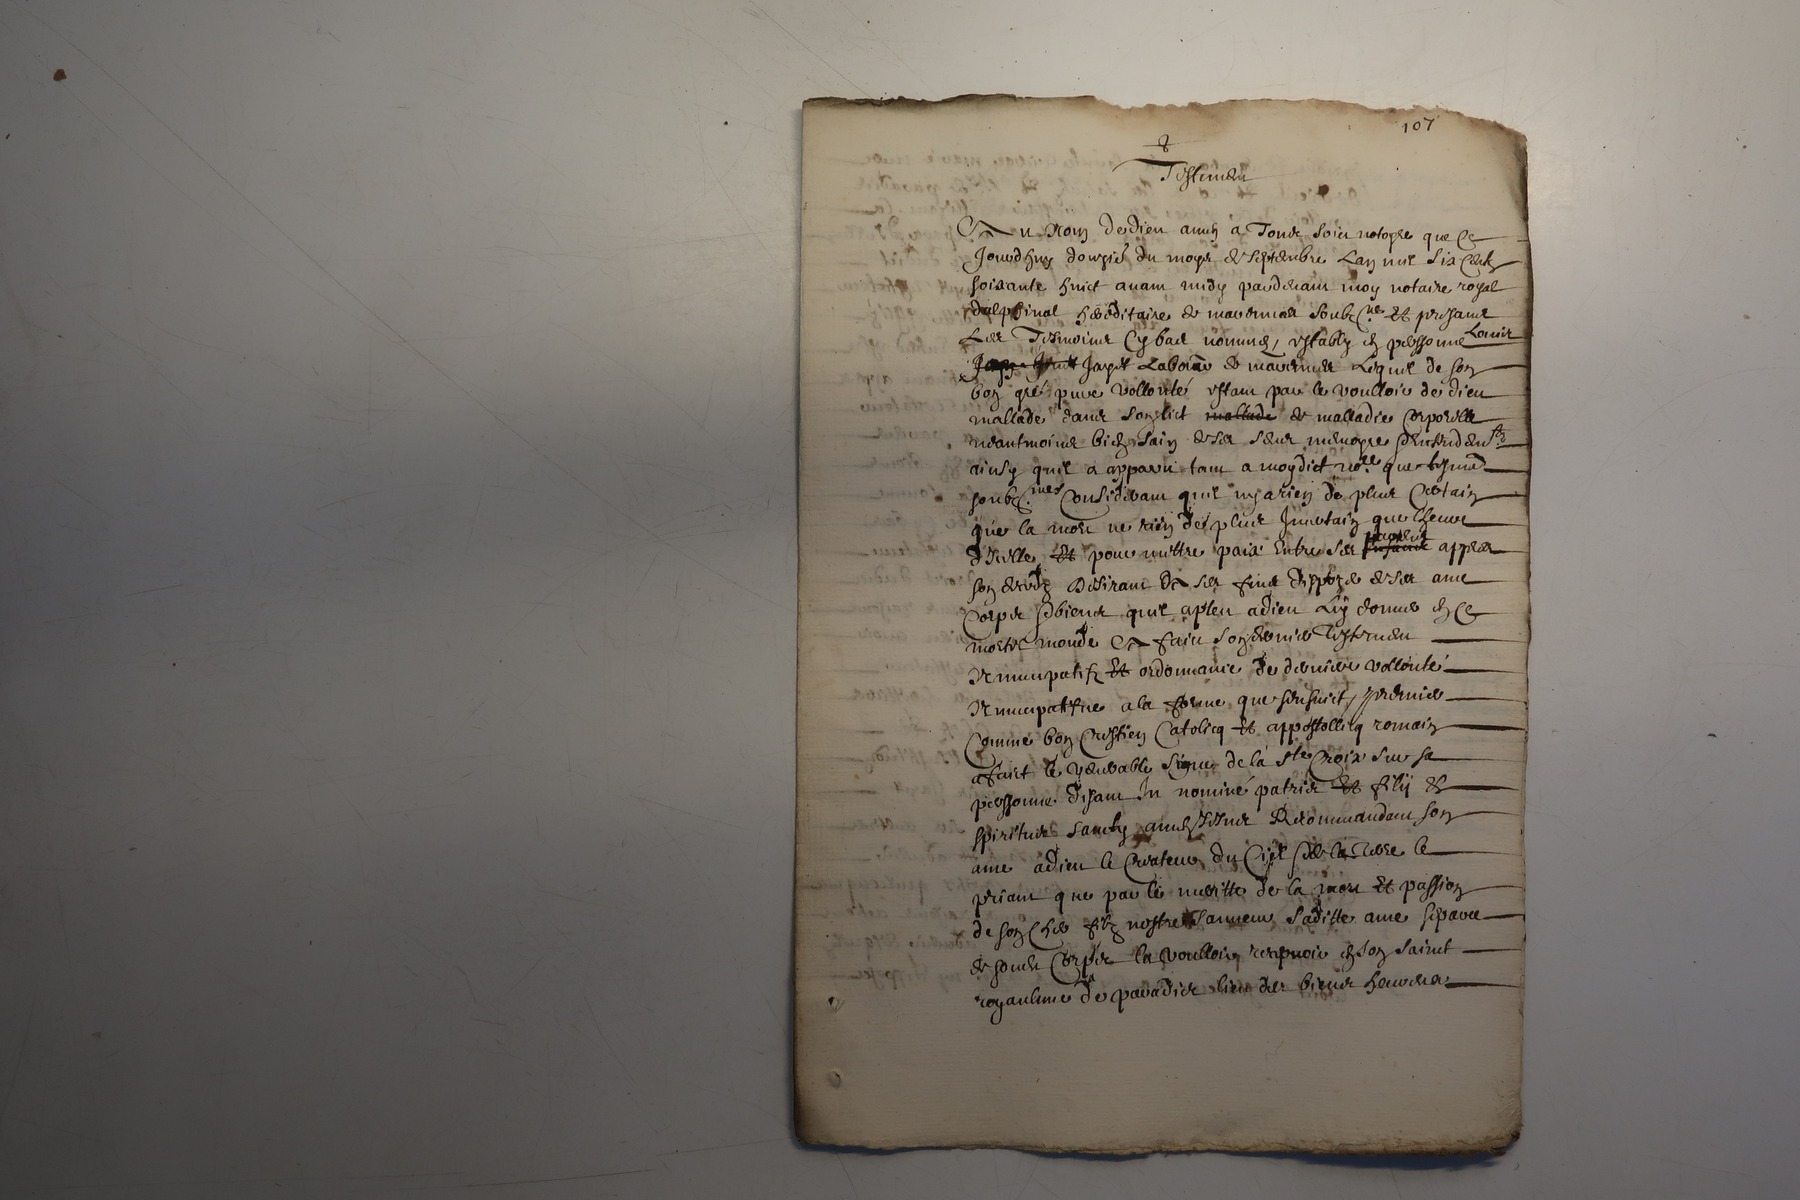 107
Testemen
Au Nom de dieu amen a Tous soit notoyre que Ce
Jourdhuy douzie du moys de septembre Lan mil six Cents
soixante huict avant midy pardevant moy notaire royal
dalphinal hereditaire de soubzne et presans
Les Tesmoins Cy bas nommes, estably en personne Louis
Jayet Laboureur de Lequel de son
bon gré pure vollonté estant par le voulloir de dieu
mallade dans son lict mallade de malladie Corporelle
neantmoins bien sain de ses sens memoyre Et entendemt
ainsy quil a apparu tant a moydict nore que tesmoins
soubznes Considerant quil ny a rien de plus Certain
que la mort ne rien de plus Incertain que lheure
dicelle, Et pour mettre paix Entre ses parens appres
son deces Desirant a ses fins disposer de ses ame
Corps Et biens quil a pleu a dieu Luy donner en Ce
mortel monde A faict son dernier Testemen
Nuncupatif Et ordonnance de derniere vollonté
Nuncupatifve a la forme que sensuict, premier
Comme bon Crestien Catolicq Et appostollicq romain
a faict le venerable signe de la ste Croix sur sa
personne disant In nomine patris Et filij Et
spiritus sancty amen Recommandant son
ame a dieu le Createur du Ciel Et de la Terre le
priant que par le meritte de la mort Et passion
de son cher filz nostre Sauveur sa ditte ame separee
de son Corps la voulloir recepvoir en son sainct
royaulme de paradis lieu des biens heureux